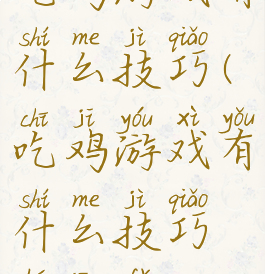 shí me jì qiǎo
什么技巧(
chī jī yóu xì yǒu
吃鸡游戏有
shí me jì qiǎo
什么技巧